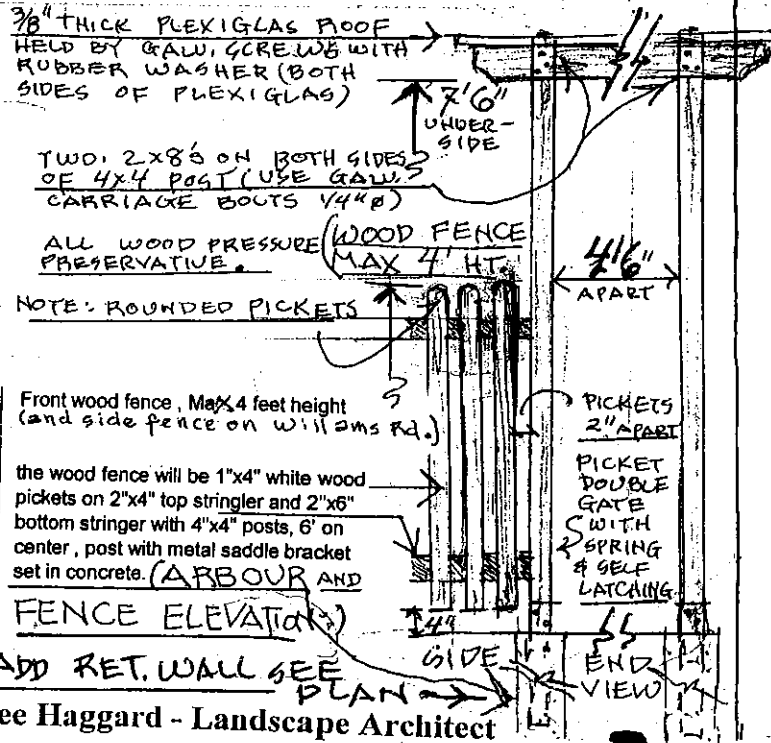 3/8" THICK PLEXIGLAS ROOF
HELD BY GALV. SCREWS WITH
RUBBER WASHER (BOTH
SIDES OF PLEXIGLAS)
7'6"
UNDER-
SIDE
TWO. 2x8'S ON BOTH SIDES
OF 4x4 POST (USE GALV.
CARRIAGE BOLTS 1/4"ø)
ALL WOOD PRESSURE
PRESERVATIVE.
(WOOD FENCE
MAX 4' HT.
4'6"
APART
NOTE: ROUNDED PICKETS
Front wood fence , Max 4 feet height
(and side fence on Williams Rd.)
PICKETS
2" APART
the wood fence will be 1"x4" white wood
pickets on 2"x4" top stringler and 2"x6"
bottom stringer with 4"x4" posts, 6' on
center , post with metal saddle bracket
set in concrete.
PICKET
DOUBLE
GATE
WITH
SPRING
& SELF
LATCHING
(ARBOUR AND
FENCE ELEVATION)
4"
ADD RET. WALL SEE
PLAN
SIDE
END
VIEW
ee Haggard - Landscape Architect